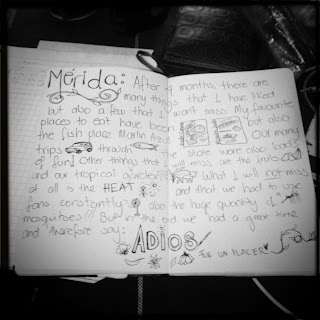 Mérida: After 4 months, there are
many things that I have liked
but also a few that I want miss. My favourite
places to eat have been but also
the fish place Our many
trips through the state were also loads
of fun! Other things that I will miss are the fruits
and our tropical What I will not miss
at all is the HEAT and that we had to use
fans constantly & also the huge quantity of
mosquitoes!!! But in the end we had a great time
and therefore say: ADIOS
FUE UN PLACER!